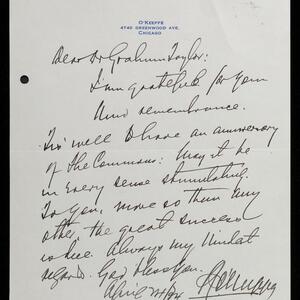 O'KEEFFE
4740 GREENWOOD AVE.
CHICAGO
Dear Dr Graham Taylor:
I'm grateful for your
kind remembrance.
'Tis well to have an anniversary
of The Commons: May it be
in every sense stimulating.
To you, more so than any
other, the great success
is due. Always my kindest
regard. God bless you.
O'Keeffe
April